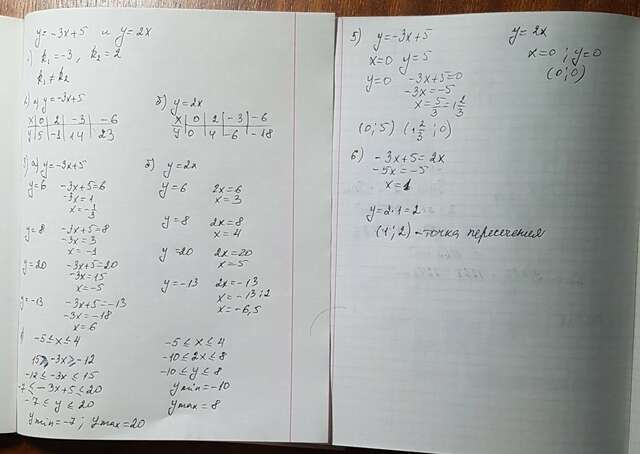 y=-3x+5 и y=2x
1) k₁=-3, k₂=2
k₁≠k₂
2) а) y=-3x+5 б) y=2x
x|0|2|-3|-6 x|0|2|-3|-6
y|5|-1|14|23 y|0|4|-6|-18
3) а) y=-3x+5 б) y=2x
y=6 -3x+5=6 y=6 2x=6
-3x=1 x=3
x=-1/3
y=8 -3x+5=8 y=8 2x=8
-3x=3 x=4
x=-1
y=20 -3x+5=20 y=20 2x=20
-3x=15 x=5
x=-5
y=-13 -3x+5=-13 y=-13 2x=-13
-3x=-18 x=-13:2
x=6 x=-6,5
-5≤x≤4 -5≤x≤4
15≥-3x≥-12 -10≤2x≤8
-12≤-3x≤15 -10≤y≤8
-7≤-3x+5≤20 ymin=-10
-7≤y≤20 ymax=8
ymin=-7; ymax=20
5) y=-3x+5 y=2x
x=0 y=5 x=0; y=0
y=0 -3x+5=0 (0;0)
-3x=-5
x=5/3=1 2/3
(0;5) (1 2/3;0)
6) -3x+5=2x
-5x=-5
x=1
y=2·1=2
(1;2)-точка пересечения